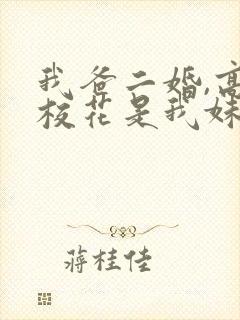 我爸二婚,高
校花是我妹
蒋桂佳